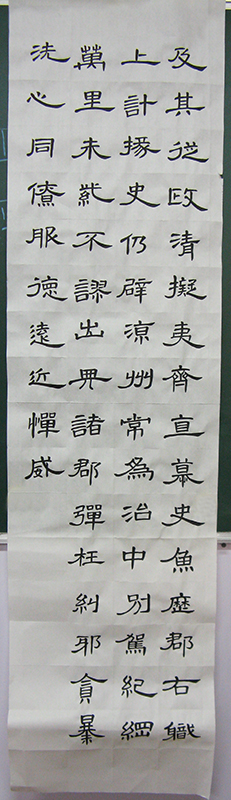 及其從政清擬夷齊直慕史魚歷郡右職
上計掾史仍辟涼州常為治中別駕紀綱
萬里朱紫不謬出典諸郡彈枉糾邪貪暴
洗心同僚服德遠近憚威